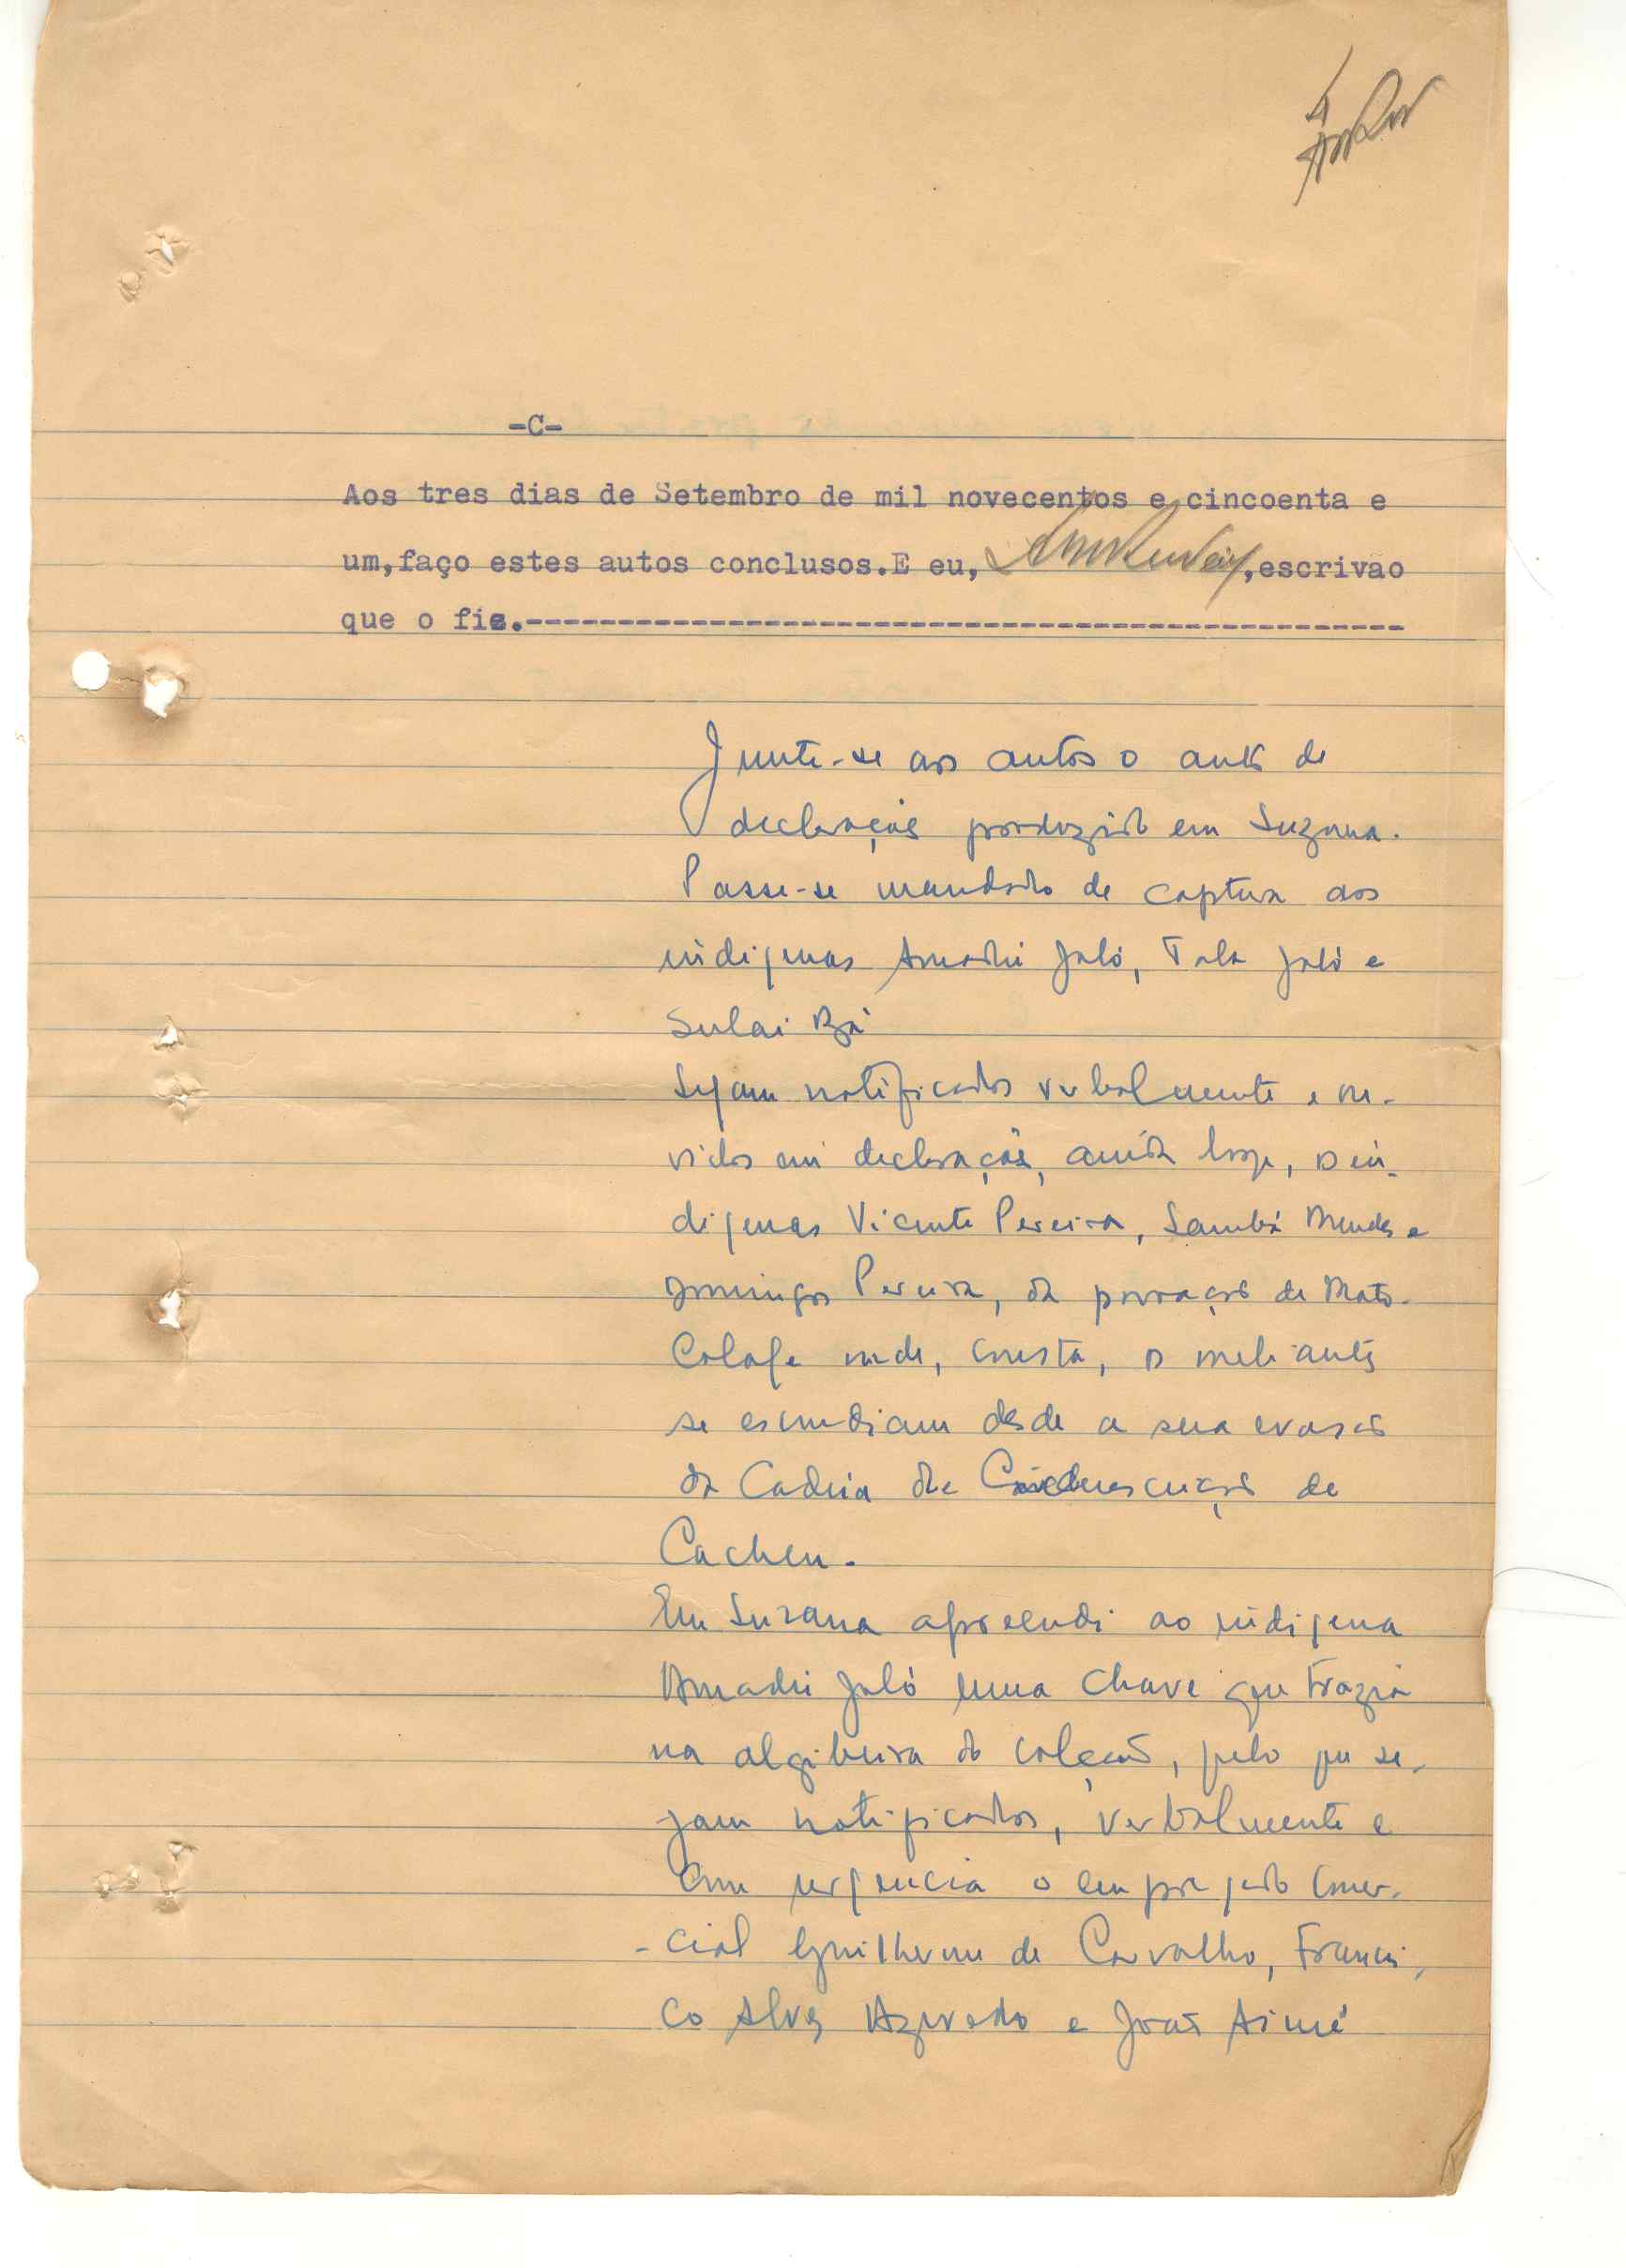 4
-C-
Aos tres dias de Setembro de mil novecentos e cincoenta e
um,faço estes autos conclusos.E eu, ,escrivão
que o fis.------------------------------------------------
Junte-se aos autos o auto de
declaração produzido em Suzana.
Passe-se mandado de captura aos
indigenas Amadú Jaló, Tala Jaló e
Sulai Bá
Sejam notificados verbalmente e ou-
vidos em declarações, ainda hoje, os in-
digenas Vicente Pereira, Sambá Mendes e
Domingos Pereira, da povoação de Mato-
Colafe onde, consta, os meliantes
se escondiam desde a sua evasão
da Cadeia da Circunscrição de
Cacheu.
Em Suzana apreendi ao indigena
Amadú Jaló uma chave que trazia
na algibeira do calção, pelo que se-
jam notificados, verbalmente e
com urgencia o empregado comer-
-cial Guilherme de Carvalho, Francis-
co Alves Azevedo e João Aimé